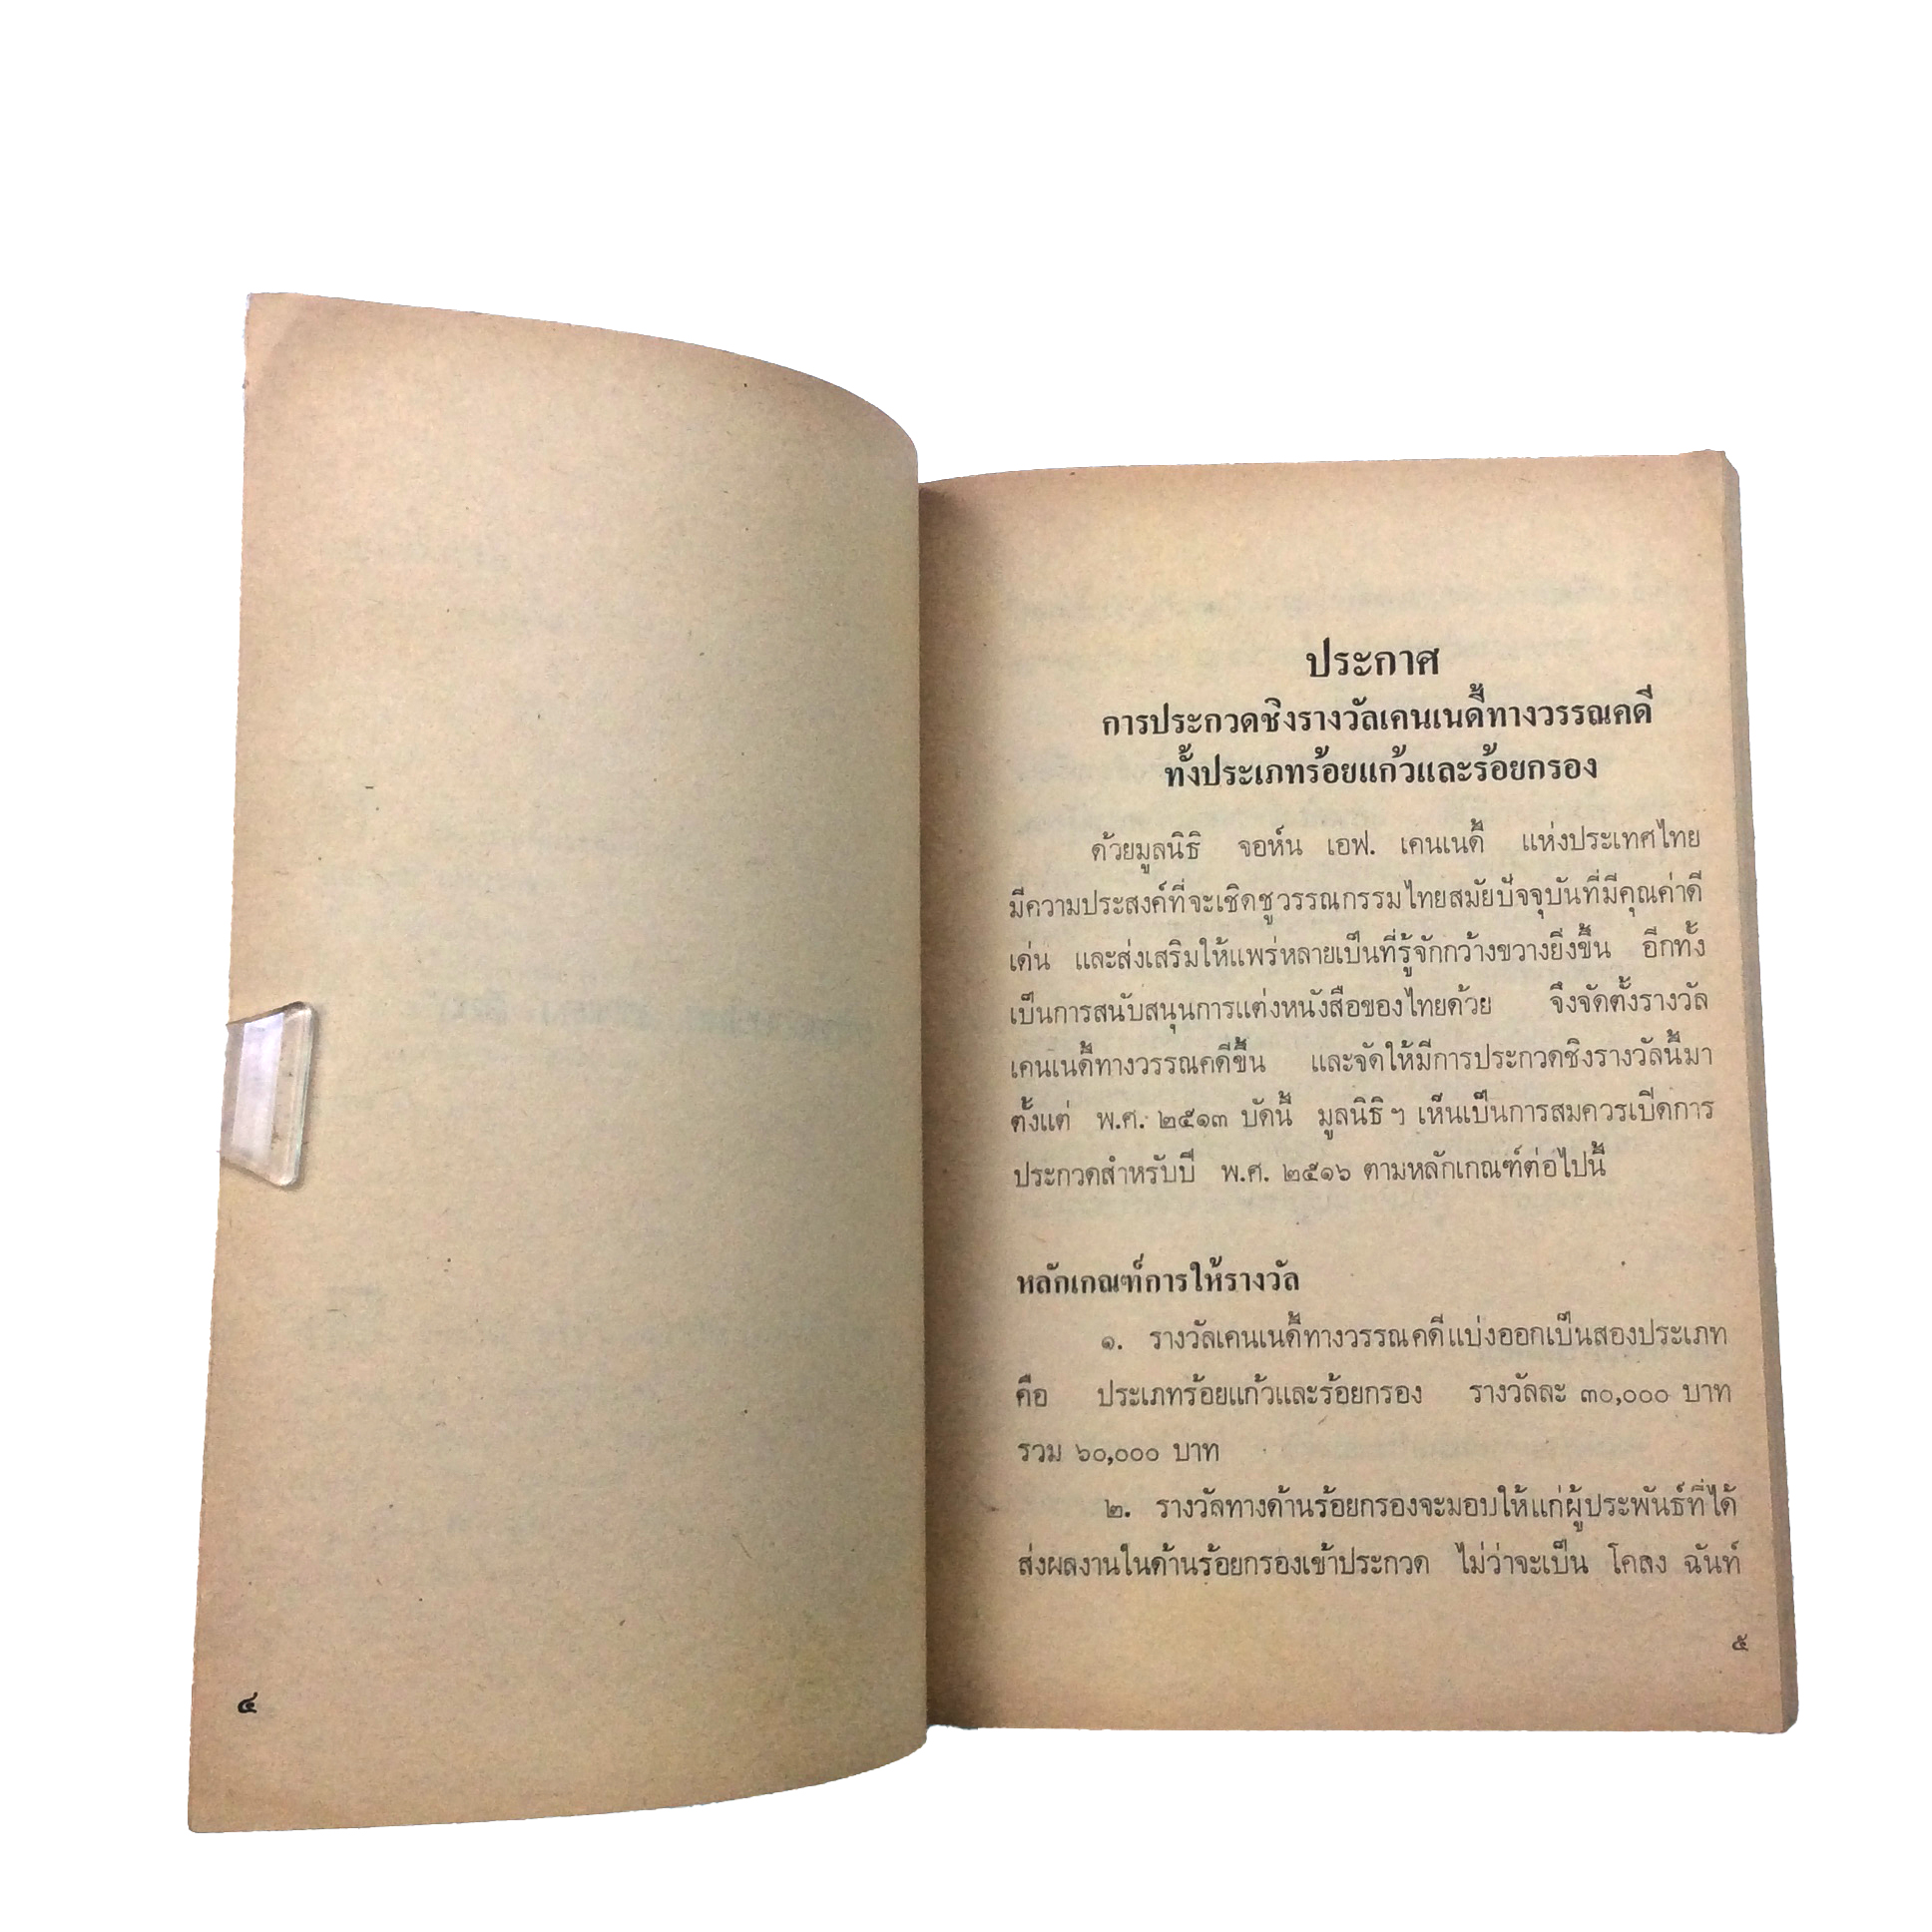 ประกาศ
การประกวดชิงรางวัลเคนเนดี้ทางวรรณคดี
ทั้งประเภทร้อยแก้วและร้อยกรอง
ด้วยมูลนิธิ จอห์น เอฟ. เคนเนดี้ แห่งประเทศไทย
มีความประสงค์ที่จะเชิดชูวรรณกรรมไทยสมัยปัจจุบันที่มีคุณค่าดี
เด่น และส่งเสริมให้แพร่หลายเป็นที่รู้จักกว้างขวางยิ่งขึ้น อีกทั้ง
เป็นการสนับสนุนการแต่งหนังสือของไทยด้วย จึงจัดตั้งรางวัล
เคนเนดี้ทางวรรณคดีขึ้น และจัดให้มีการประกวดชิงรางวัลนี้มา
ตั้งแต่ พ.ศ. ๒๕๑๓ บัดนี้ มูลนิธิฯ เห็นเป็นการสมควรเปิดการ
ประกวดสำหรับปี พ.ศ. ๒๕๑๖ ตามหลักเกณฑ์ต่อไปนี้
หลักเกณฑ์การให้รางวัล
๑. รางวัลเคนเนดี้ทางวรรณคดีแบ่งออกเป็นสองประเภท
คือ ประเภทร้อยแก้วและร้อยกรอง รางวัลละ ๓๐,๐๐๐ บาท
รวม ๖๐,๐๐๐ บาท
๒. รางวัลทางด้านร้อยกรองจะมอบให้แก่ผู้ประพันธ์ที่ได้
ส่งผลงานในด้านร้อยกรองเข้าประกวด ไม่ว่าจะเป็น โคลง ฉันท์
๕
๔